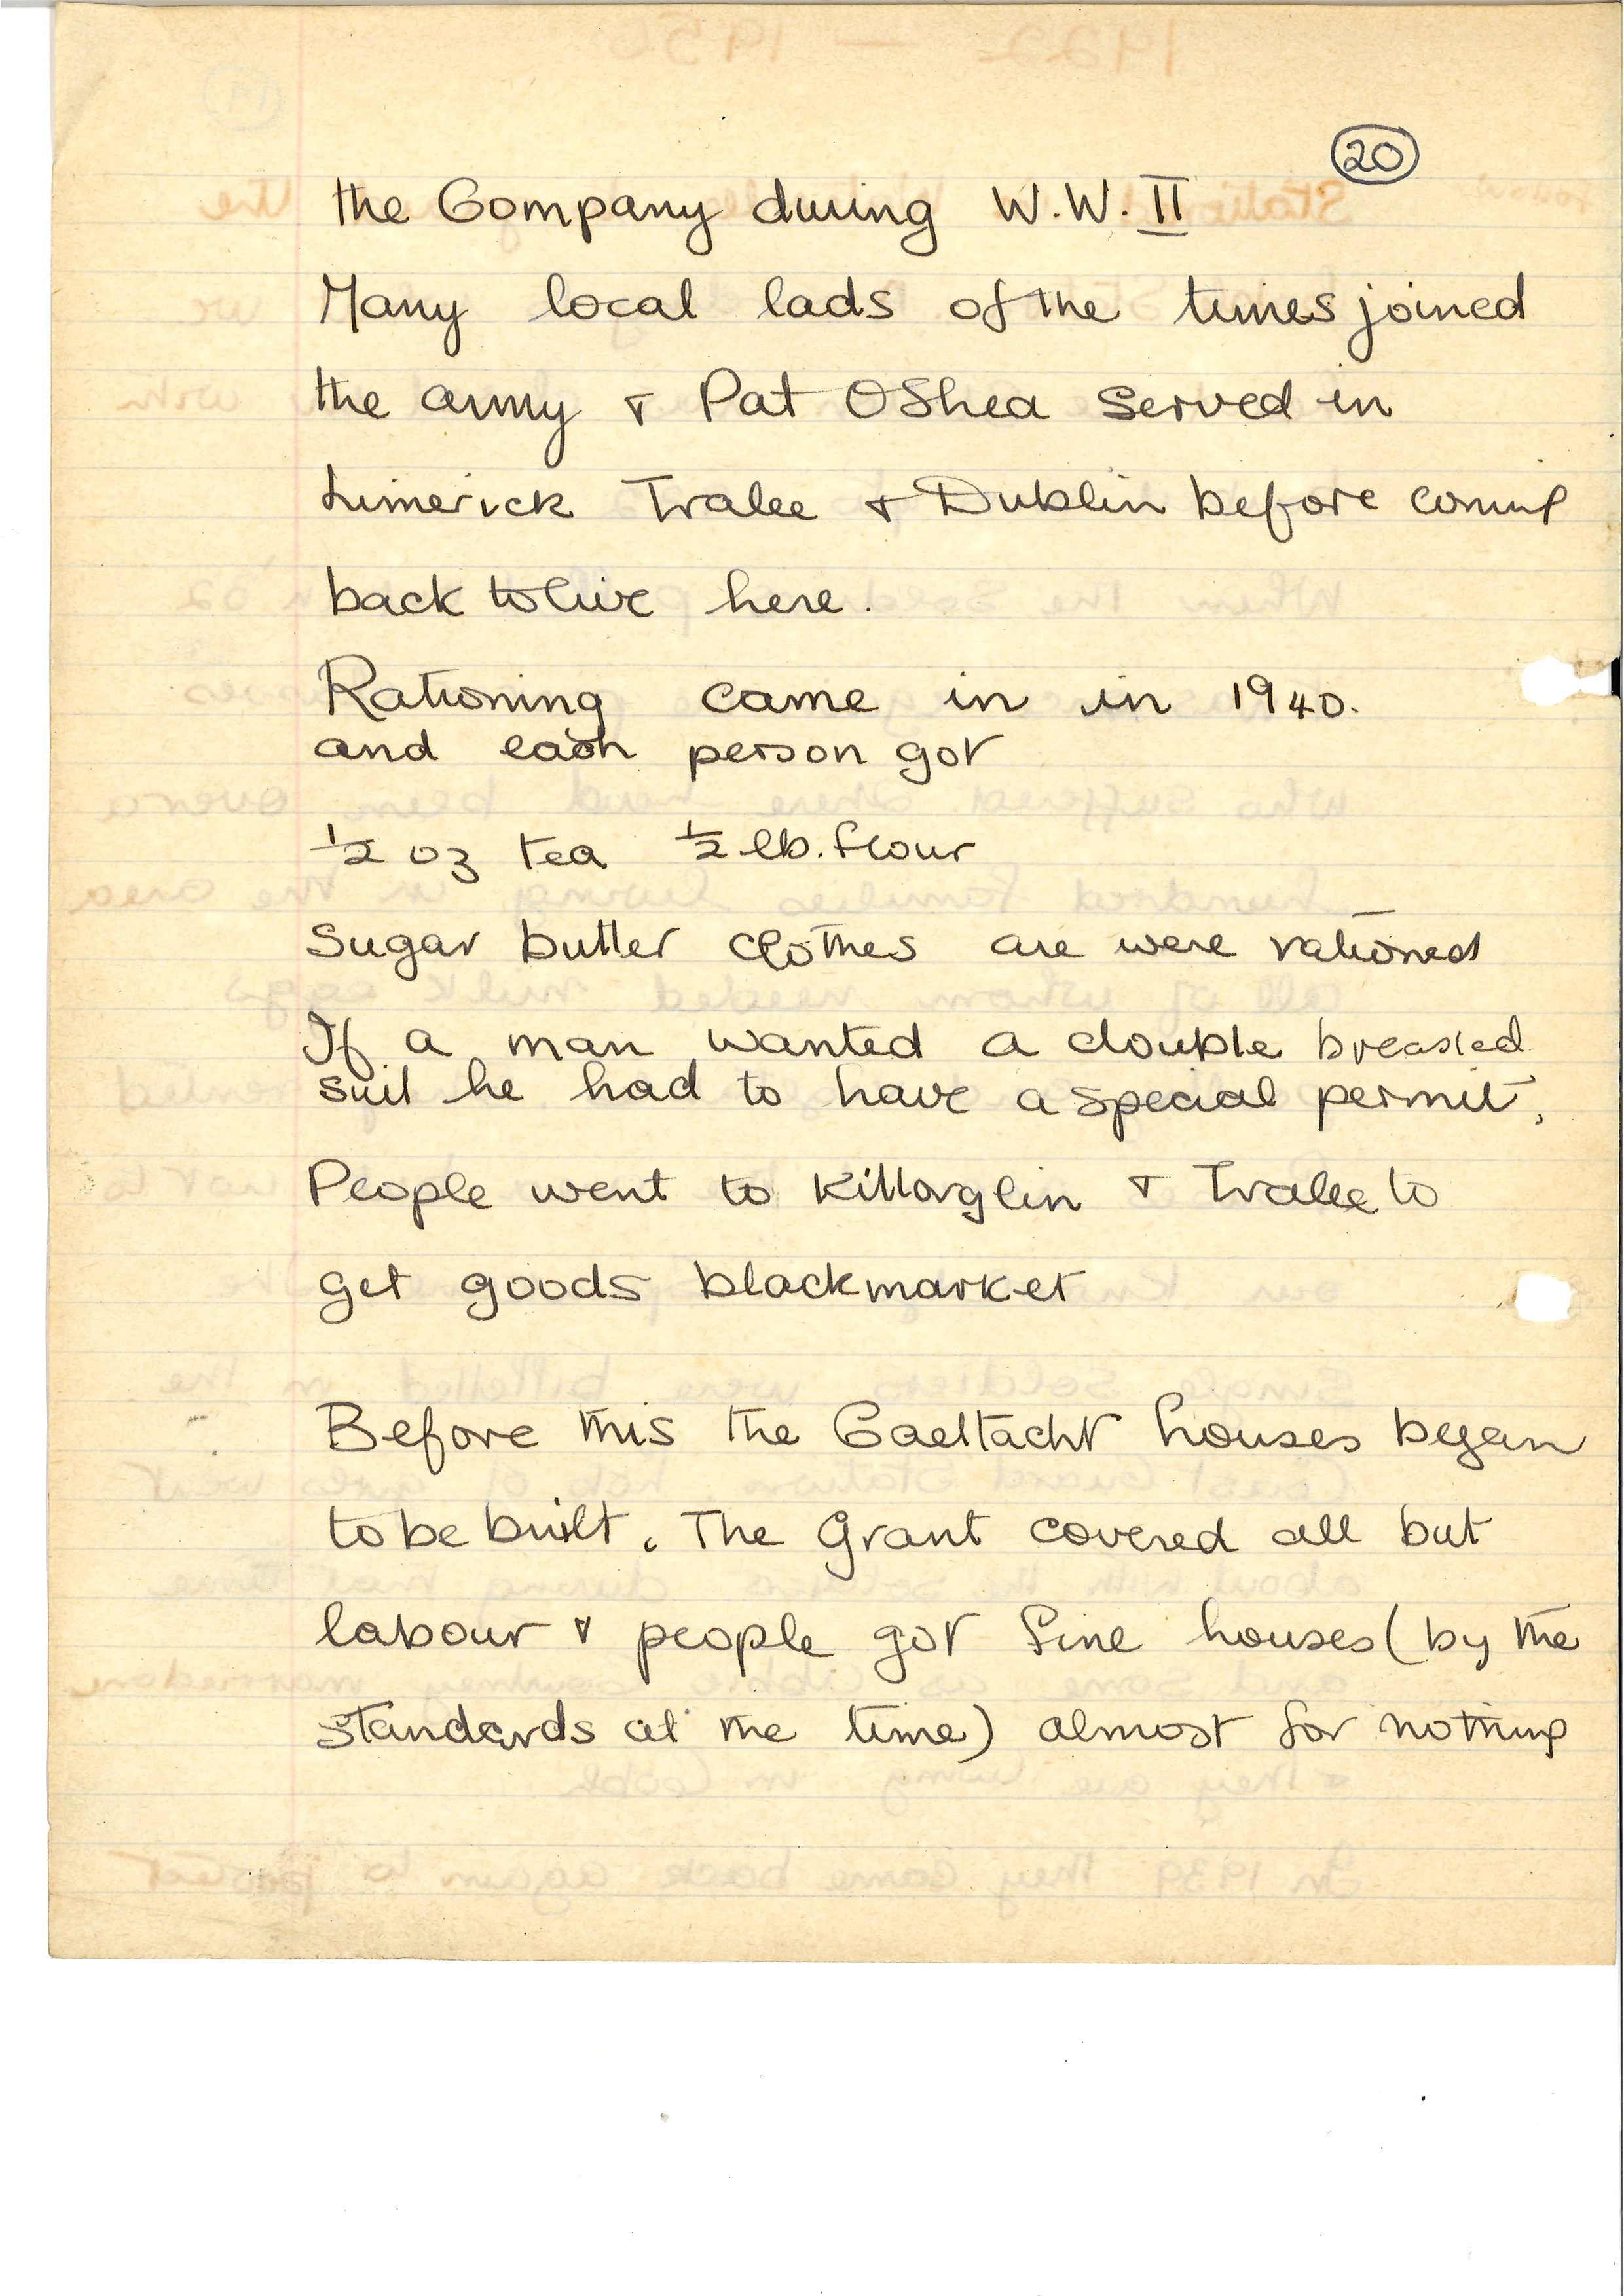 20
the Company during W.W. II
Many local lads of the times joined
the army & Pat OShea served in
Limerick Tralee & Dublin before coming
back to live here.
Rationing came in in 1940.
and each person got
½ oz tea ½ lb. flour
Sugar butter clothes are were rationed
If a man wanted a double breasted
suit he had to have a special permit,
People went to Killorglin & Tralee to
get goods blackmarket
Before this the Gaeltacht houses began
to be built. The Grant covered all but
labour & people got fine houses (by the
standards at the time) almost for nothing